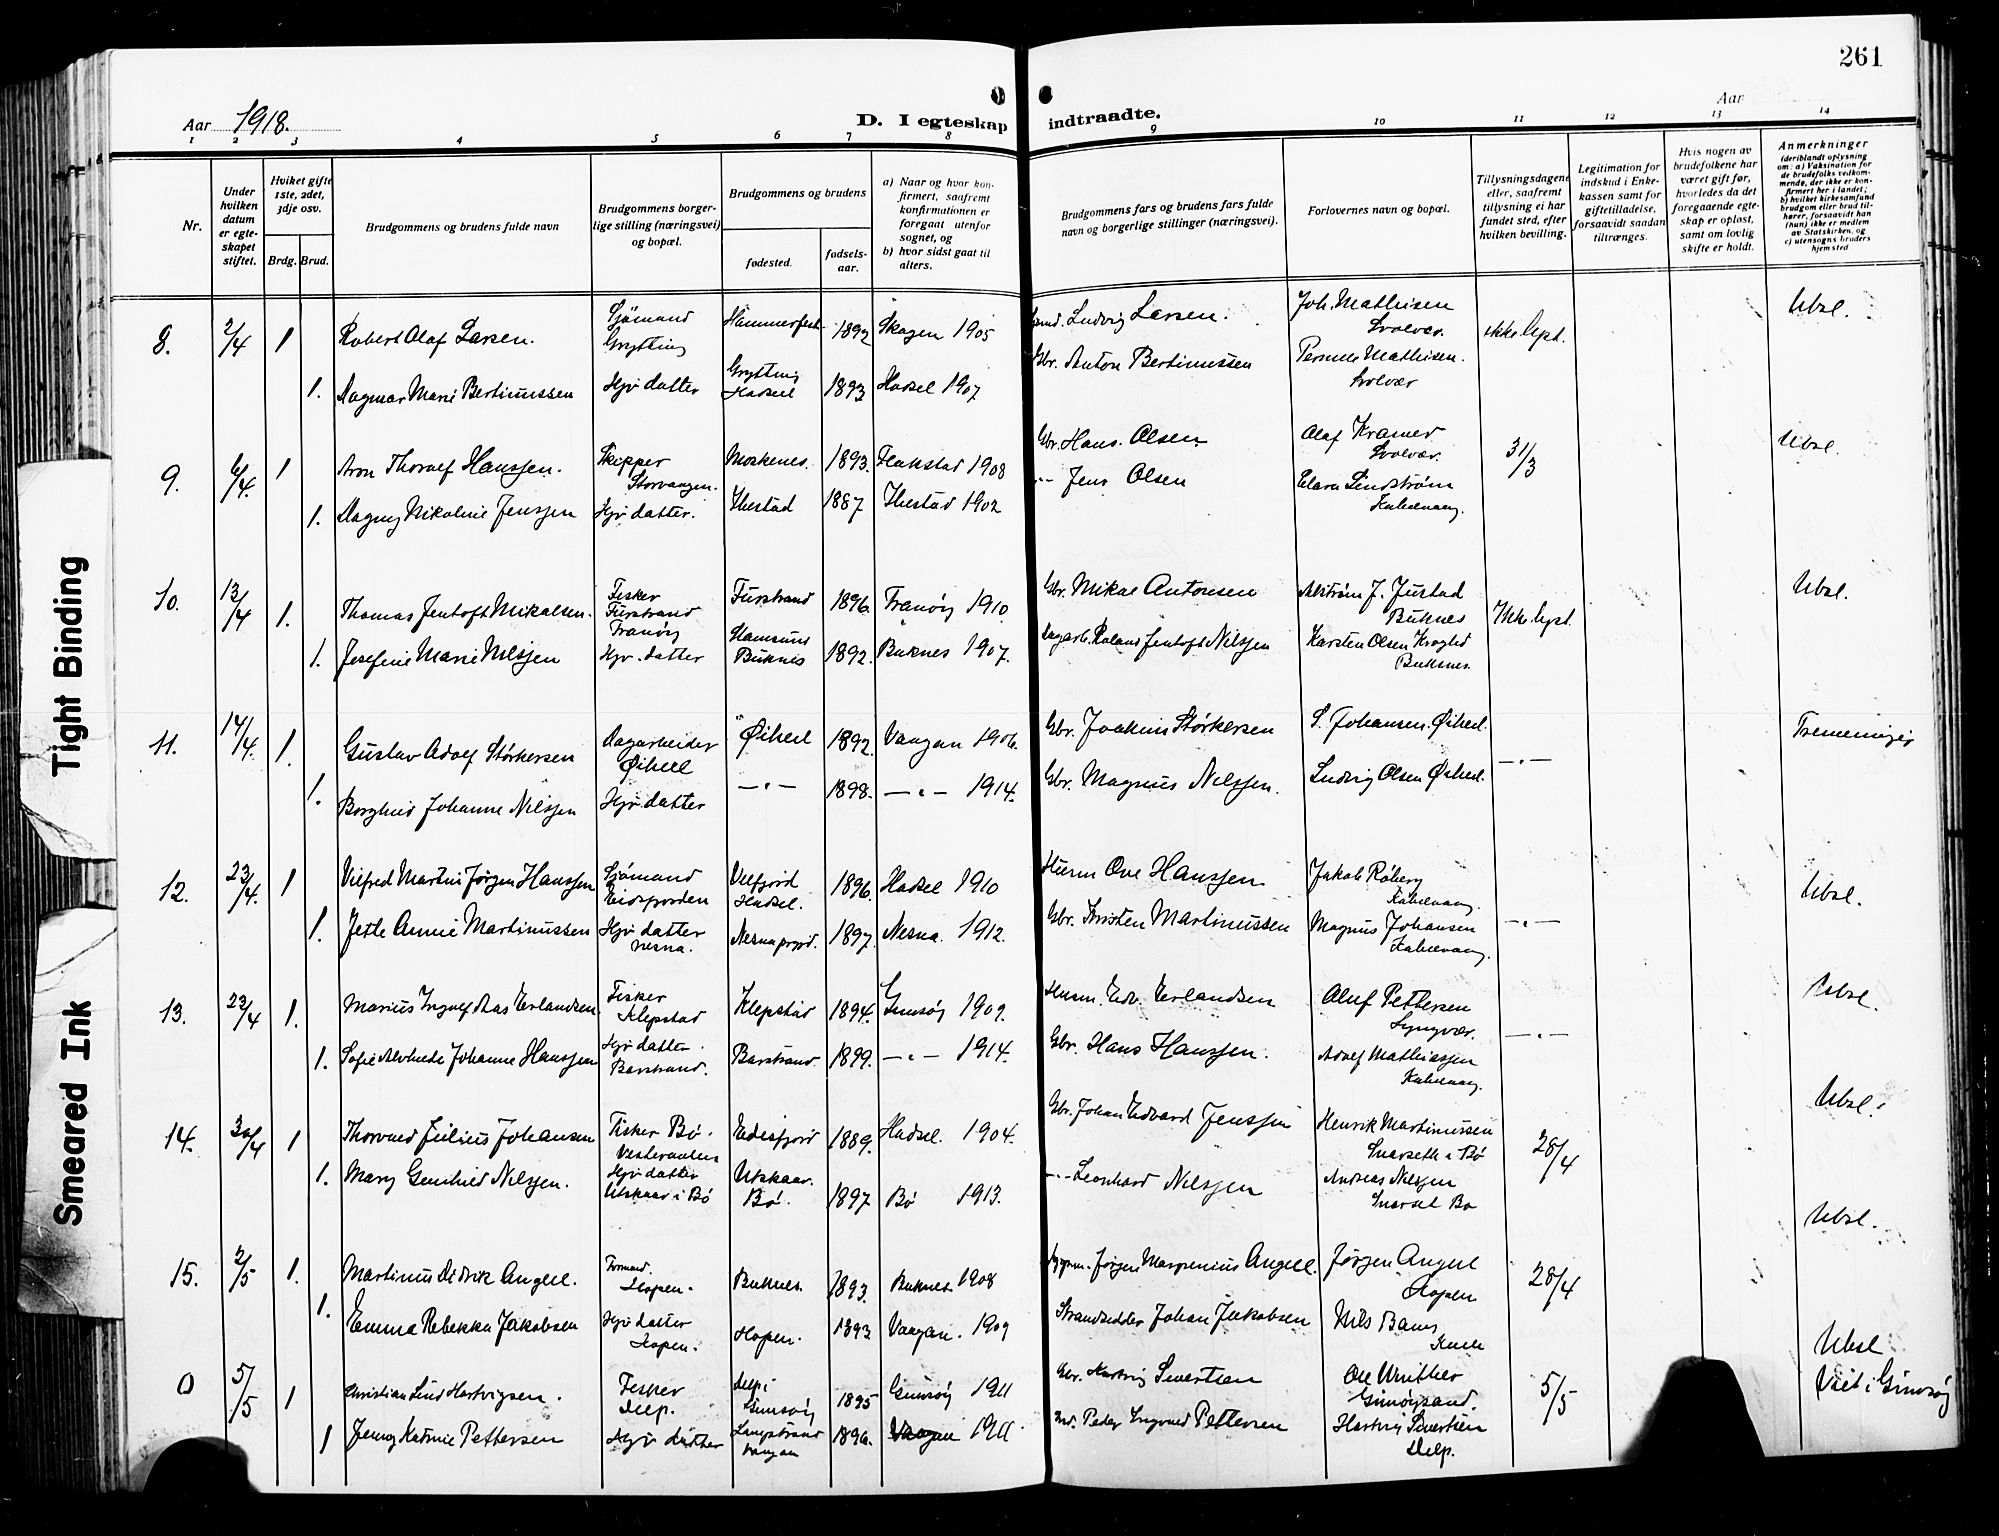 261
Aar 1918.
D. I egteskap indtraadte.
Aar
1 2 3 4 5 6 7 8 9 10 11 12 13 14
Nr.
Under hvilken datum er egteskapet stiftet.
Hviket gifte 1ste, 2det, 3dje osv.
Brdg. Brud.
Brudgommens og brudens fulde navn
Brudgommens borgerlige stilling (næringsvei) og bopæl.
Brudgommens og brudens
fødested.
fødselsaar.
a) Naar og hvor konfirmert, saafremt konfirmationen er foregaat utenfor sognet, og
b) hvor sidst gaat til alters.
Brudgommens fars og brudens fars fulde navn og borgerlige stillinger (næringsvei).
Forlovernes navn og bopæl.
Tillysningsdagene eller, saafremt tillysning ei har fundet sted, efter hvilken bevilling.
Legitimation for indskud i Enkekassen samt for giftetilladelse, forsaavidt saadan tiltrænges.
Hvis nogen av brudefolkene har været gift før, hvorledes da det foregaaende egteskap er opløst, samt om lovlig skifte er holdt.
Anmerkninger
(deriblandt oplysning om: a) Vaksination for de brudefolks vedkommende, der ikke er konfirmert her i landet; b) hvilket kirkesamfund brudgom eller brud tilhører, forsaavidt han (hun) ikke er medlem av Statskirken, og c) utensogns bruders hjemsted
8. 2/4 1 Robert Olaf Larsen. Sjømand Grytting Hammerfest 1892 Skagen 1905 Ludvig Larsen. Joh. Mathisen Svolvær. Ikke lyst. Ubsl.
1. Dagmar Marie Bertinussen Hjv datter Grytting Hadsel 1893 Hadsel 1907 Gbr. Anton Bertinussen Mathisen. Svolvær
9. 6/4 1 Aron Thoralf Hanssen. Skipper Storvaagen. Moskenes. 1893. Flakstad 1908 Gbr. Hans Olsen. Olaf Kramer Svolvær. 31/3 Ubsl.
1. Dagny Nikoline Jenssen Hjv datter. Ibestad 1887 Ibestad 1902 -"- Jens Olsen Clara Lindstrøm Kabelvaag.
10. 13/4 1. Thomas Jentoft Mikalsen. Fisker Furstrand Tranøy Furstrand 1896. Tranøy 1910. Gbr. Mikal Antonsen J. Justad Buknes Ikke lyst. Ubsl.
1. Josefine Marie Nilssen Hjv. datter Stamsund Buknes 1892. Buknes 1907. Dagarb. Roland Jentoft Nilssen Karsten Olsen Buknes.
11. 14/4. 1. Gustav Adolf Størkersen Dagarbeider Øihell Øihell 1892. Vaagan 1906. Gbr. Joakim Størkersen S. Johansen. Øihell. -"- Tremeninger
1. Borghild Johanne Nilssen Hjv datter -"- 1898. -"- 1914. Gbr. Magnus Nilssen. Ludvig Olsen Øihell.
12. 23/4. 1 Vilfred Martin Jørgen Hanssen Sjømand Eidsfjorden Hadsel. 1896. Hadsel 1910 Husm Ove Hanssen Jakob Røberg Kabelvaag. -"- Ubsl.
1. Jette Annie Martinussen Hjv datter Nesna. Nesna prgd. 1897. Nesna. 1912. Gbr. Kristen Martinussen Magnus Johansen Kabelvaag.
13. 23/4 1. Marius Ingvolf Aas Erlandsen. Fisker Klepstad Klepstad 1894. Gimsøy 1909. Husm. Edv. Erlandsen Oluf Pettersen Lyngvær. -"- Ubsl.
1. Sofie Alvhilde Johanne Hanssen Hjv datter. Barstrand. Barstrand. 1899. -"- 1914. Gbr. Hans Hanssen. Adolf Mathiassen Kabelvaag.
14. 30/4 1 Thorvald Julius Johansen Fisker Bø. Vesteraalen Eidesfjord 1889. Hadsel. 1904. Gbr. Johan Edvard Jenssen Henrik Martinussen i Bø 28/4 Ubsl.
1. Mary Gunhild Nilssen. Hjv datter Utskaar i Bø Utskaar. Bø. 1897. Bø 1913. -"- Leonhard Nilssen Andreas Nilssen Bø
15. 2/5 1. Martinus Didrik Angell. Formand. Hopen. Buknes. 1893. Buknes. 1908 Jørgen Angell. Jørgen Angell Hopen 28/4 Ubsl.
1. Emma Rebekka Jakobsen Hjv datter Hopen. Hopen. 1893 Vaagan. 1909 Strandsidder Johan Jakobsen Nils
0 5/5 1 Christian Lind Hartvigsen. Fisker Delp. Delp i Gimsøy 1895 Gimsøy 1911 Gbr. Hartvig Sivertsen Ole Winther Gimsøysand. 5/5 Ubsl. Viet i Gimsøy
1 Jenny Katrine Pettersen Hjv datter Langstrand Vaagan 1896. Vaagan 1911 Peder Ingvald Pettersen Hartvig Sivertsen Delp.
Tight Binding
Smeared Ink